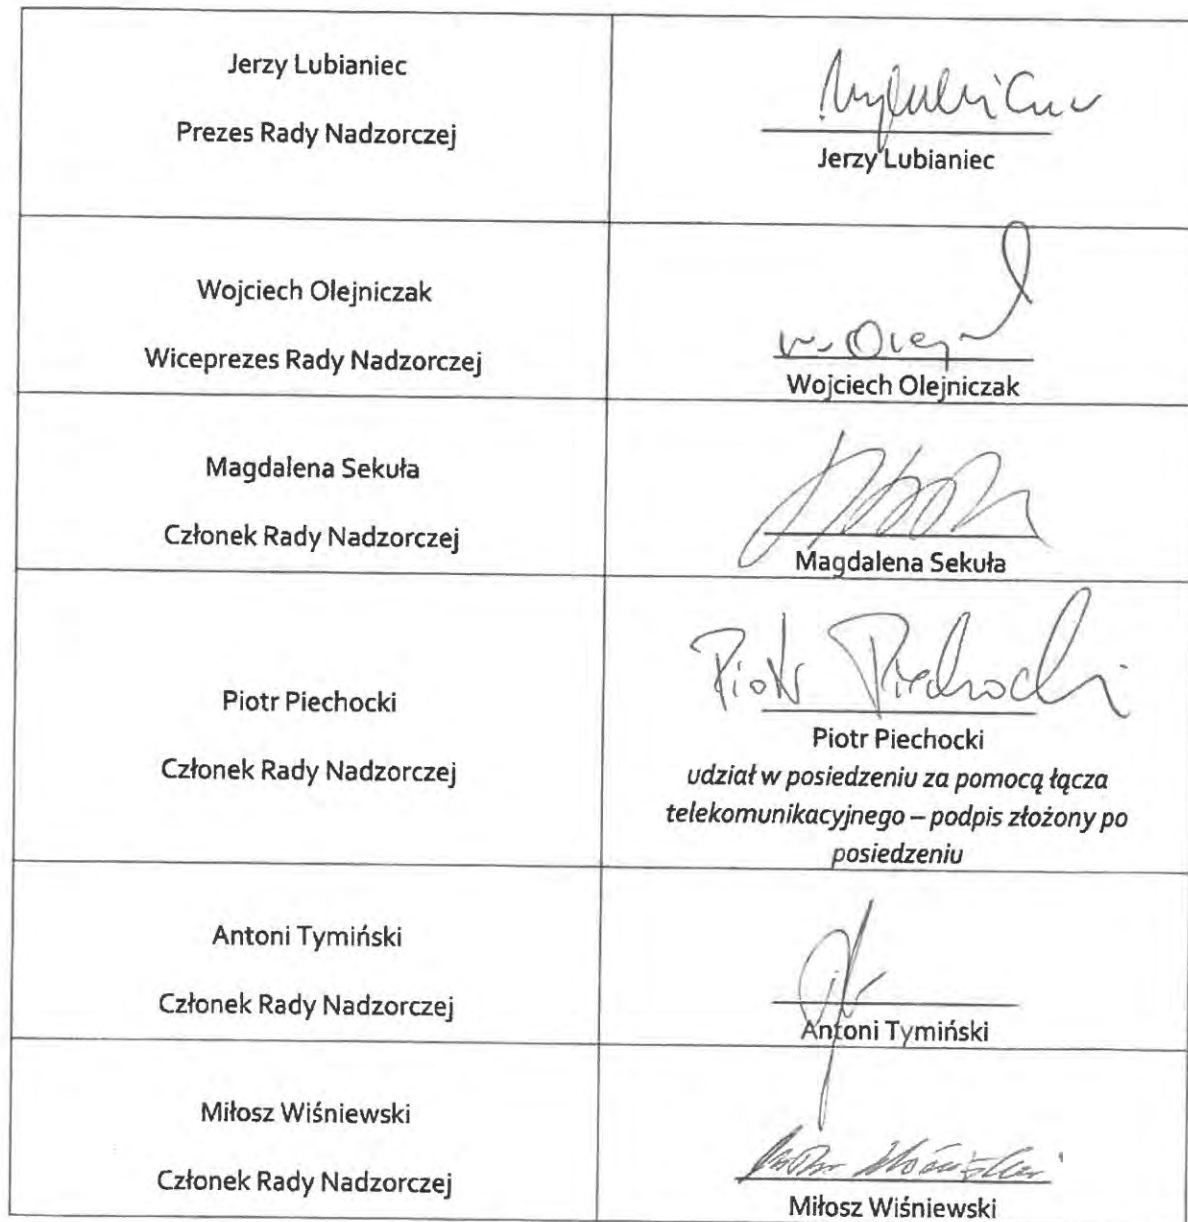 Jerzy Lubianiec
Prezes Rady Nadzorczej
Jerzy Lubianiec
Wojciech Olejniczak
Wiceprezes Rady Nadzorczej
Wojciech Olejniczak
Magdalena Sekuła
Członek Rady Nadzorczej
Magdalena Sekuła
Piotr Piechocki
Członek Rady Nadzorczej
Piotr Piechocki
Piotr Piechocki
udział w posiedzeniu za pomocą łącza
telekomunikacyjnego – podpis złożony po
posiedzeniu
Antoni Tymiński
Członek Rady Nadzorczej
Antoni Tymiński
Miłosz Wiśniewski
Członek Rady Nadzorczej
Miłosz Wiśniewski